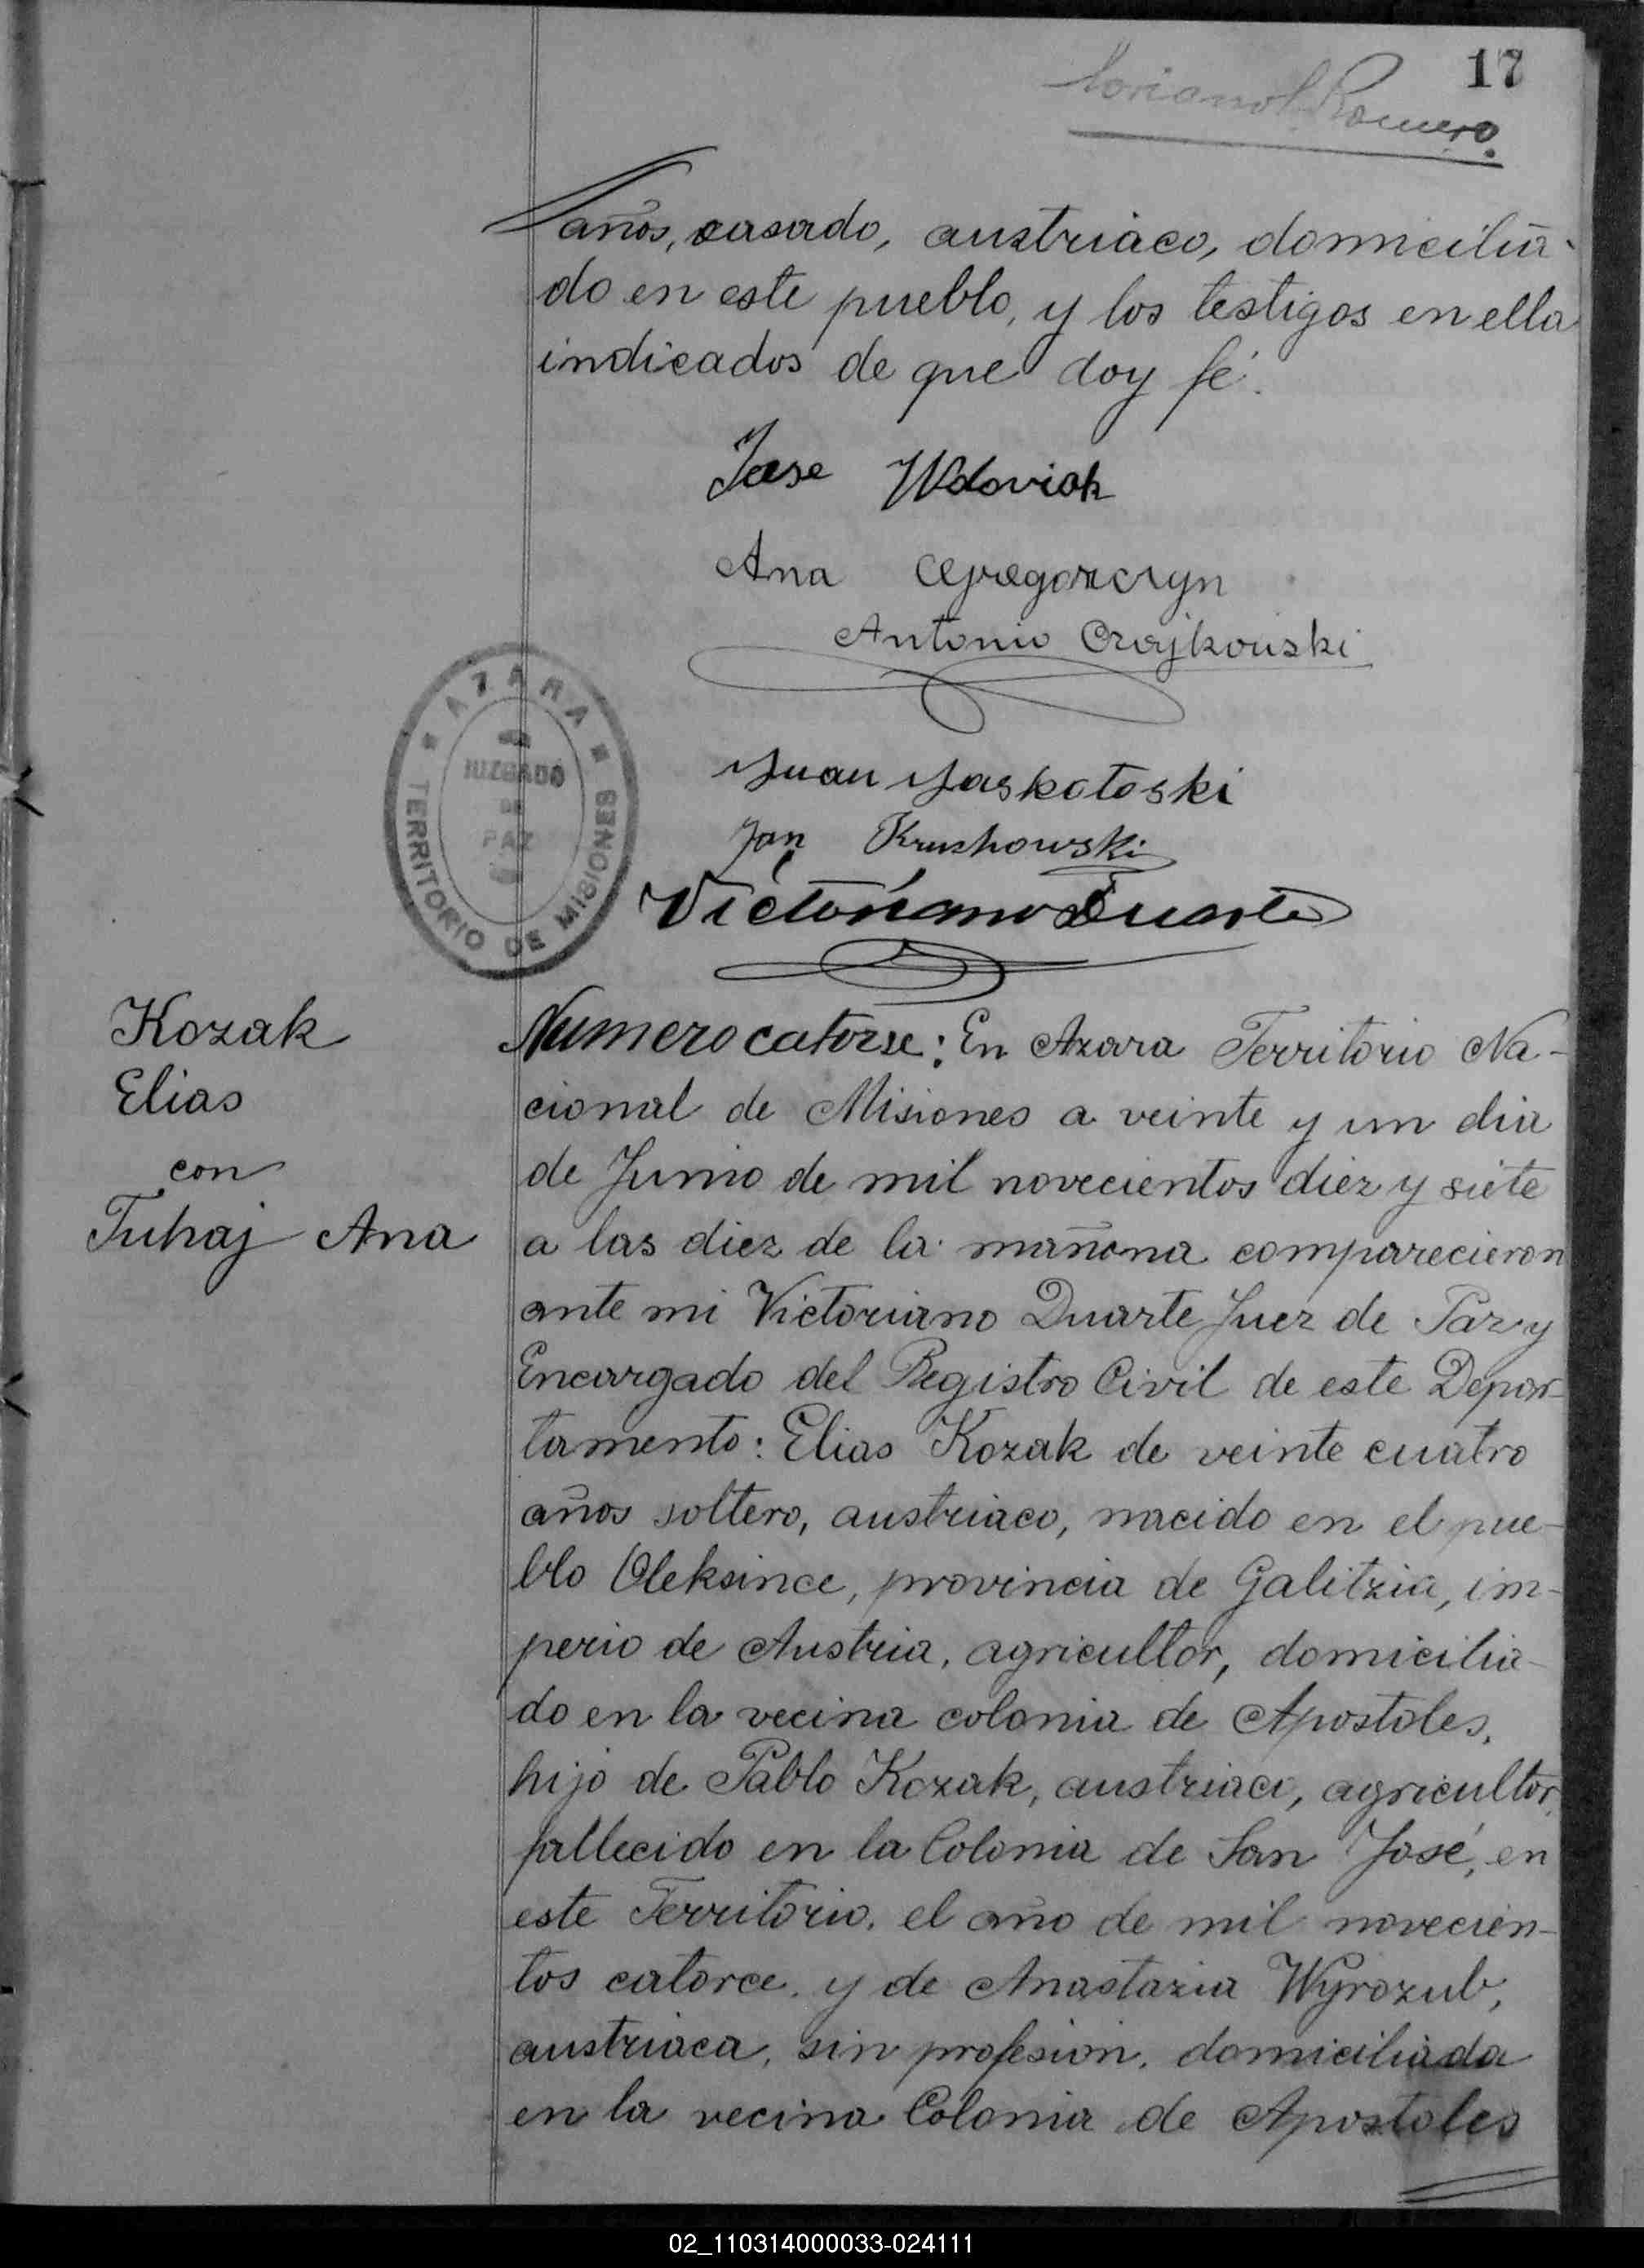 17
Romero.
años, casado, austriaco, domicilia-
do en este pueblo, y los testigos en ella
indicados de que doy fé.
Jose Wdoviak
Ana
Antonio Czajkouski
AZARA
JUZGADO
DE
PAZ
TERRITORIO DE MISIONES
Juan
Jan
Victoriano Duarte
Kozak
Elias
con
Tuhaj Ana
Numero catorse: En Azara Territorio Na-
cional de Misiones a veinte y un dia
de Junio de mil novecientos diez y siete
a las diez de la mañana comparecieron
ante mi Victoriano Duarte Juez de Paz y
Encargado del Registro Civil de este Depar-
tamento: Elias Kozak de veinte cuatro
años soltero, austriaco, nacido en el pue-
blo Oleksince, provincia de Galitzia, im-
perio de Austria, agricultor, domicilia-
do en la vecina colonia de Apostoles,
hijo de Pablo Kozak, austriaco, agricultor,
fallecido en la Colonia de San José, en
este Territorio, el año de mil novecien-
tos catorce, y de Anastazia Wyrozub,
austriaca, sin profesion, domiciliada
en la vecina Colonia de Apostoles
02_110314000033-024111